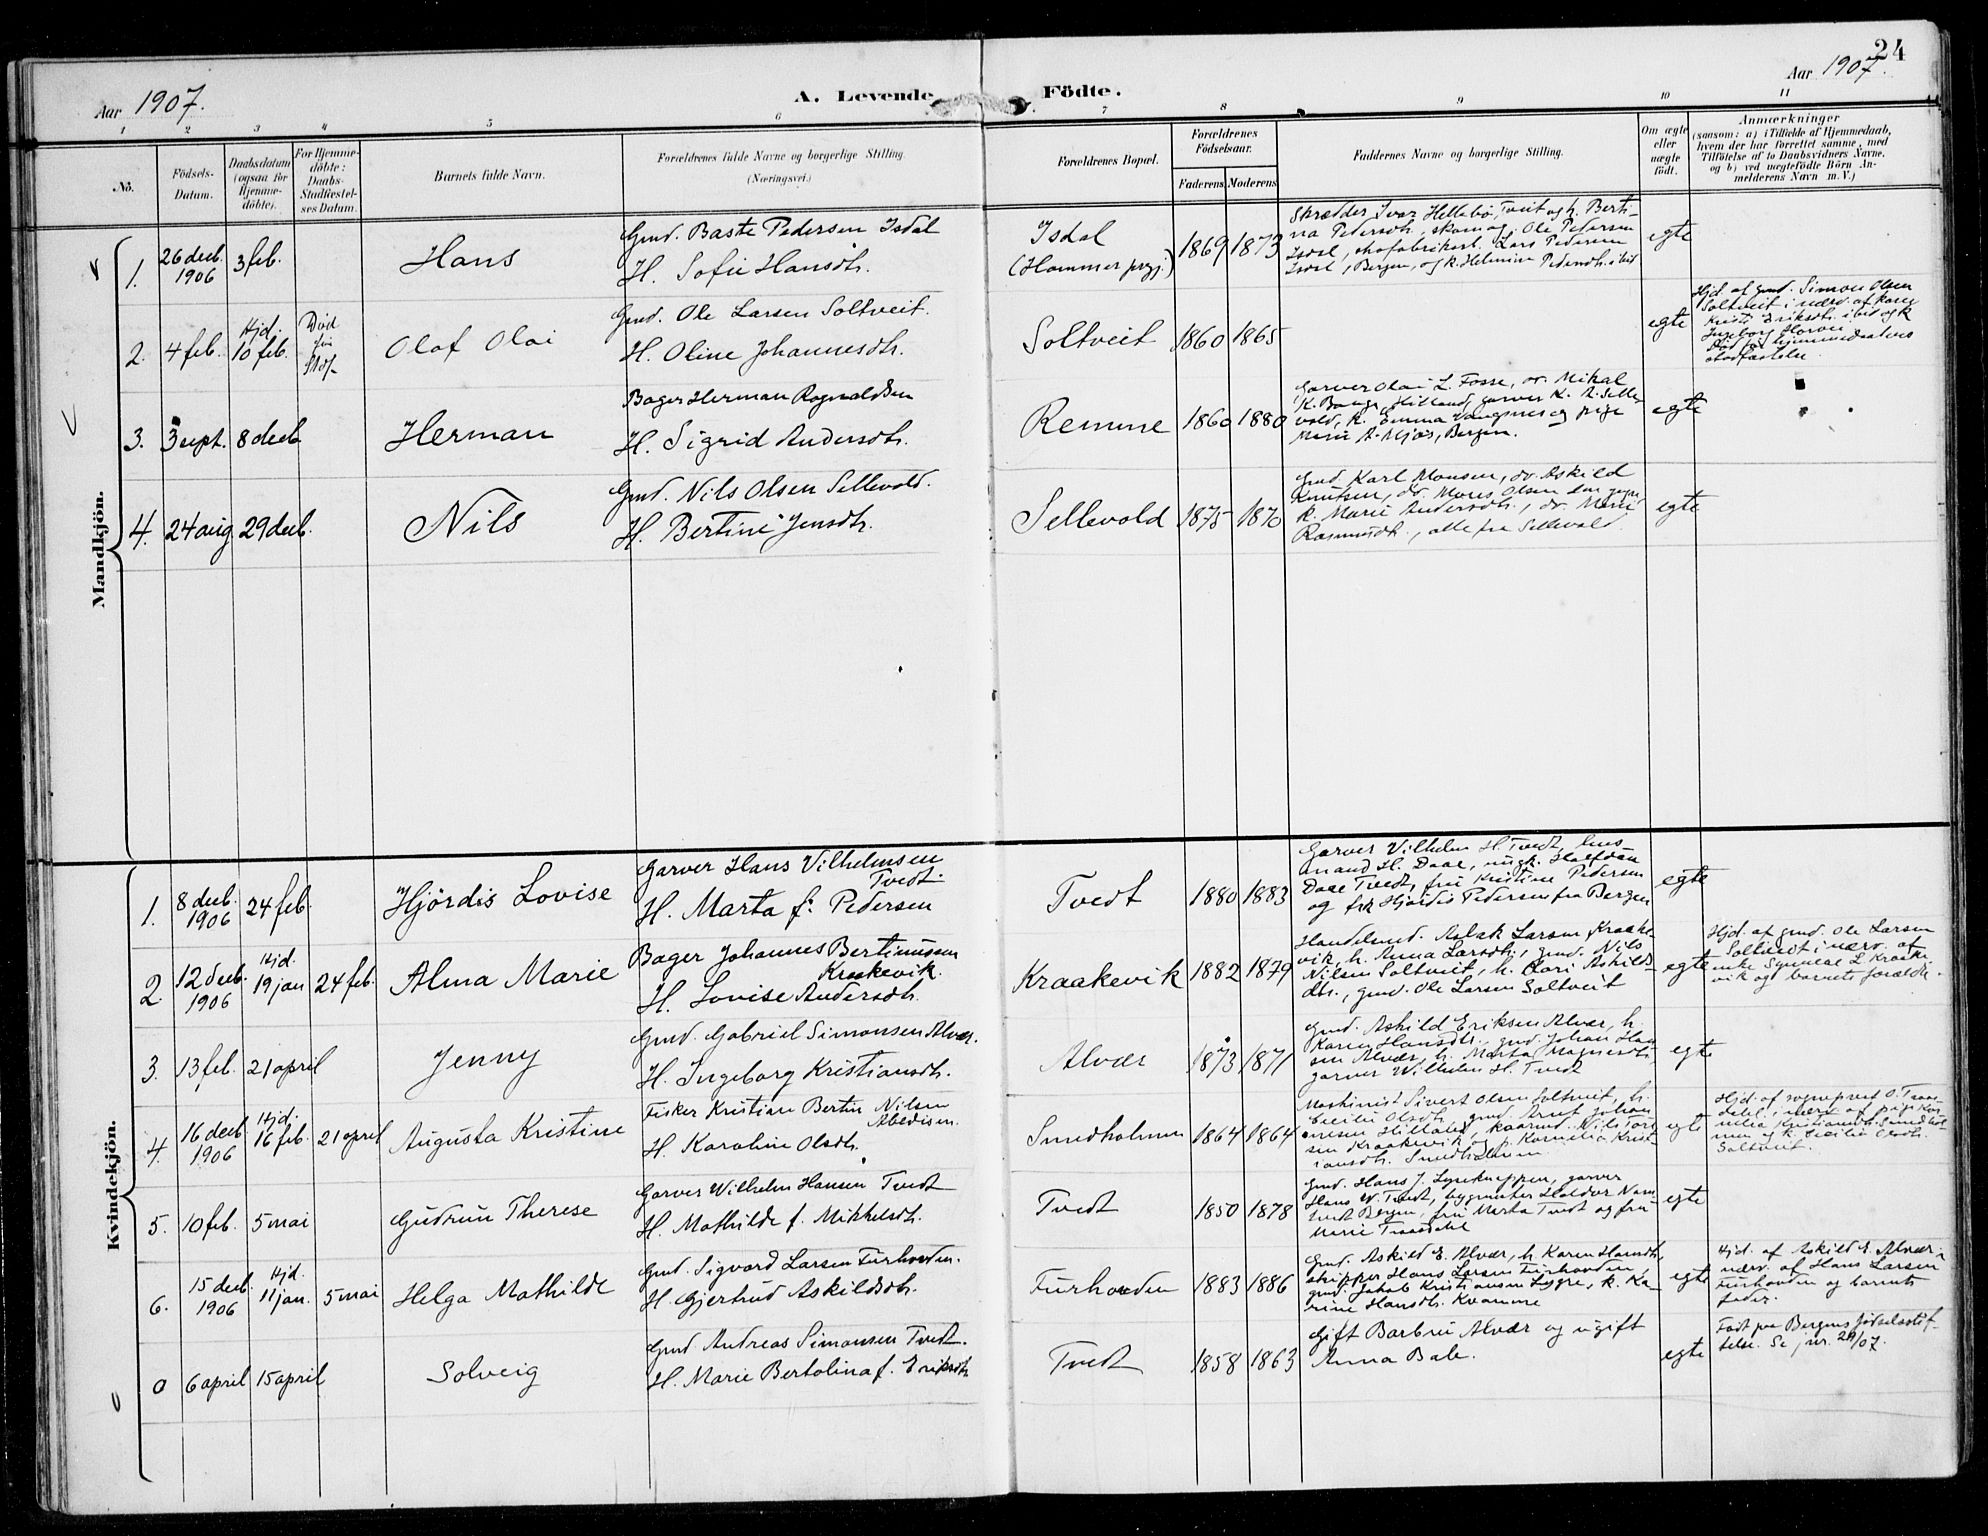 24
Aar 1907.
A. Levende Födte.
Aar 1907.
1 2 3 4 5 6 7 8 9 10 11
No.
Födsels-
Datum.
Daabsdatum
(ogsaa for
Hjemme-
döbte).
For Hjemme-
döbte:
Daabs-
Stadfæstel-
ses Datum.
Barnets fulde Navn.
Forældrenes fulde Navne og borgerlige Stilling.
(Næringsvei.)
Forældrenes Bopæl.
Forældrenes
Födselsaar.
Faderens Moderens
Faddernes Navne og borgerlige Stilling.
Om ægte
eller
uægte
födt.
Anmærkninger
(saasom: a) i Tilfælde af Hjemmedaab,
hvem der har forrettet samme, med
Tilföielse af to Daabsvidners Navne,
og b) ved uægtefödte Börn An-
melderens Navn m. V.)
Mandkjön.
1. 26 decb. 1906 3 feb.
Hans
Gmd. Baste Pedersen Isdal
H. Sofie Hansdtr.
Isdal
(Hammer prgj.)
1869 1873
Skrædder Ivar Hellebö, Tveit og h. Berti-
na Pedersdtr., skomag. Ole Pedersen
Isdal, Lars Pedersen
Isdal, Bergen, og k. Helmine Pedersdtr. ibid
egte
2. 4 feb. Hjd. 10 feb. Död för stadf.
Olaf Olai
Gmd. Ole Larsen Soltveit.
H. Oline Johannesdtr.
Soltveit
1860 1865
egte
Hjd. af gmd. Simon Olsen
Soltveit i nærv. af kone
Eriksdtr. ibid og k
Ingeborg
Död för hjemmedaabens
stadfæstelse.
3. 3 sept. 8 decb
Herman
Bager Herman Ragnvaldsen
H. Sigrid Andersdtr.
Remme
1860 1880
Garver Olai L. Fosse, dr. Mikal
K. Bauge, Hilland, garver K. A. Selle-
vold, k. Emma Vangsnes og pige
Marie A. Mjös, Bergen.
egte
4. 24 aug. 29 decb.
Nils
Gmd. Nils Olsen Sellevold.
H. Bertine Jensdtr.
Sellevold
1875 1870
Gmd. Karl Monsen, dr. Askild
Knutsen, dr. Mons Olsen
k. Marie Andersdtr., dr. Marie
Rasmusdtr., alle fra Sellevold.
egte
Kvindekjön.
1. 8 decb. 1906 24 feb.
Hjördis Lovise
Garver Hans Vilhelmsen
Tvedt.
H. Marta f. Pedersen
Tvedt
1880 1883
Garver Vilhelm H. Tvedt, hus-
mand H. Daae, ungk. Halfdan
Daae Tvedt, fru Kristine Pedersen
og frk Hjördis Pedersen fra Bergen
egte
2. 12 decb. 1906 Hjd. 19 jan 24 feb.
Alma Marie
Bager Johannes Bertinussen
Kraakevik.
H. Lovise Andersdtr.
Kraakevik
1882 1879
Handelsmd. Aslak Larsen Kraake-
vik, h. Anna Larsdtr., gmd. Nils
Nilsen Soltveit, h. Kari Askilds-
dtr., gmd. Ole Larsen Soltveit
egte
Hjd. af gmd. Ole Larsen
Soltveit i nærv. af
enke Synneve L. Kraake-
vik og barnets forældre.
3. 13 feb. 21 april
Jenny
Gmd. Gabriel Simonsen Alvær.
H. Ingeborg Kristiansdtr.
Alvær
1873 1871
Gmd. Askild Eriksen Alvær, h.
Karen Hansdtr., gmd. Johan Han-
sen Alvær, h. Marta Magnesdtr.,
garver Wilhelm H. Tvedt
egte
4. 16 decb 1906 Hjd. 16 feb. 21 april
Augusta Kristine
Fisker Kristian Bertin Nilsen
Abedisen.
H. Karoline Olsdtr.
Smedholmen
1864 1864
Maskinist Sivert Olsen Soltveit, h.
Cecilie Olsdtr., gmd. Arnt Johan-
nesen Hilland, kaarmd. Nils
Kraakevik og p. Kornelia Krist-
iansdtr. Smedholmen
egte
Hjd. af sogneprest O. Traa-
dal i nærv. af pige Kor-
nelia Kristiansdtr. Smedhol-
men og k. Cecilie Olsdtr.
Soltveit.
5. 10 feb. 5 mai
Gudrun Therese
Garver Wilhelm Hansen Tvedt
H. Mathilde f. Mikkelsdtr.
Tvedt
1850 1878
Gmd. Hans J. Lyreknappen, garver
Hans W. Tvedt, bygmester Haldor Nam-
tvedt Bergen, fru Marta Tvedt og fru
Marie Traadal
egte
6. 15 decb 1906 Hjd. 11 jan. 5 mai
Helga Mathilde
Gmd. Sigvard Larsen Furhovden.
H. Gjertrud Askildsdtr.
Furhovden
1883 1886
Gmd. Askild E. Alvær, h. Karen Hansdtr.,
skipper Hans Larsen Furhovden,
gmd. Jakob Kristiansen Lygre, k. Ka-
rine Hansdtr. Kvamme
egte
Hjd. af Askild E. Alvær i
nærv. af Hans Larsen
Furhovden og barnets
fader.
0 6 april 15 april
Solveig
Gmd Andreas Simonsen Tvedt.
H. Marie Bertolina f. Eriksdtr
Tvedt
1858 1863
Gift Barbru Alvær og ugift
Anna Bale.
egte
Födt paa Bergens födselsstif-
telse. Se, nr. 29/07.